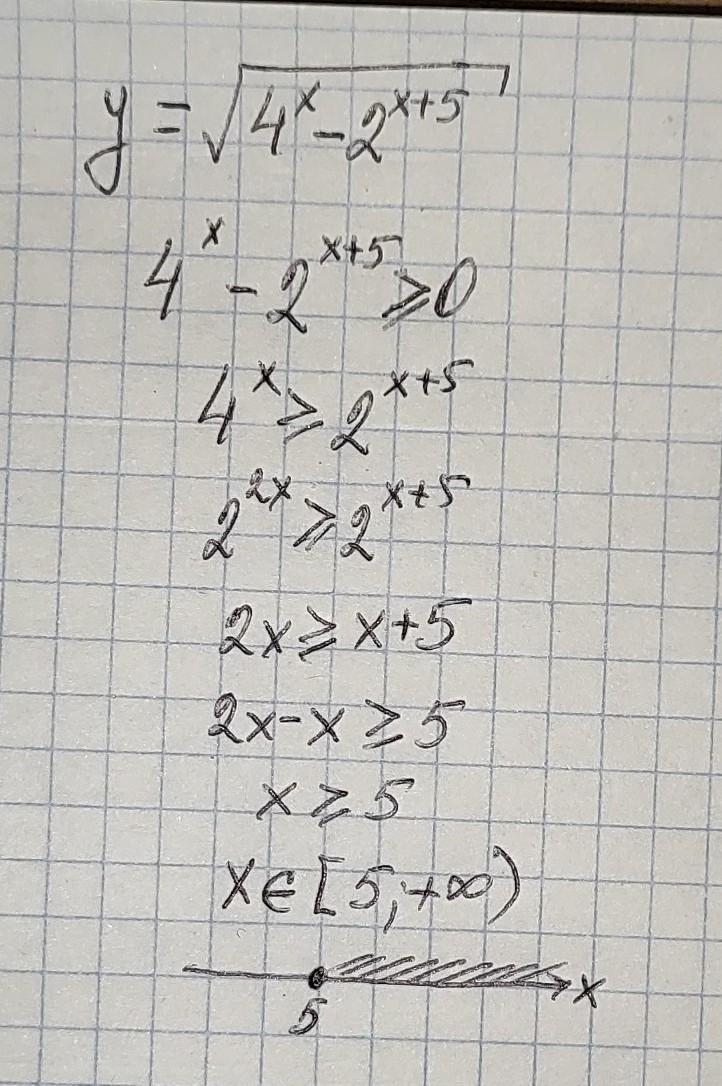 y = √(4^x - 2^(x+5))
4^x - 2^(x+5) ⩾ 0
4^x ⩾ 2^(x+5)
2^(2x) ⩾ 2^(x+5)
2x ⩾ x+5
2x-x ⩾ 5
x ⩾ 5
x ∈ [5; +∞)
x
5